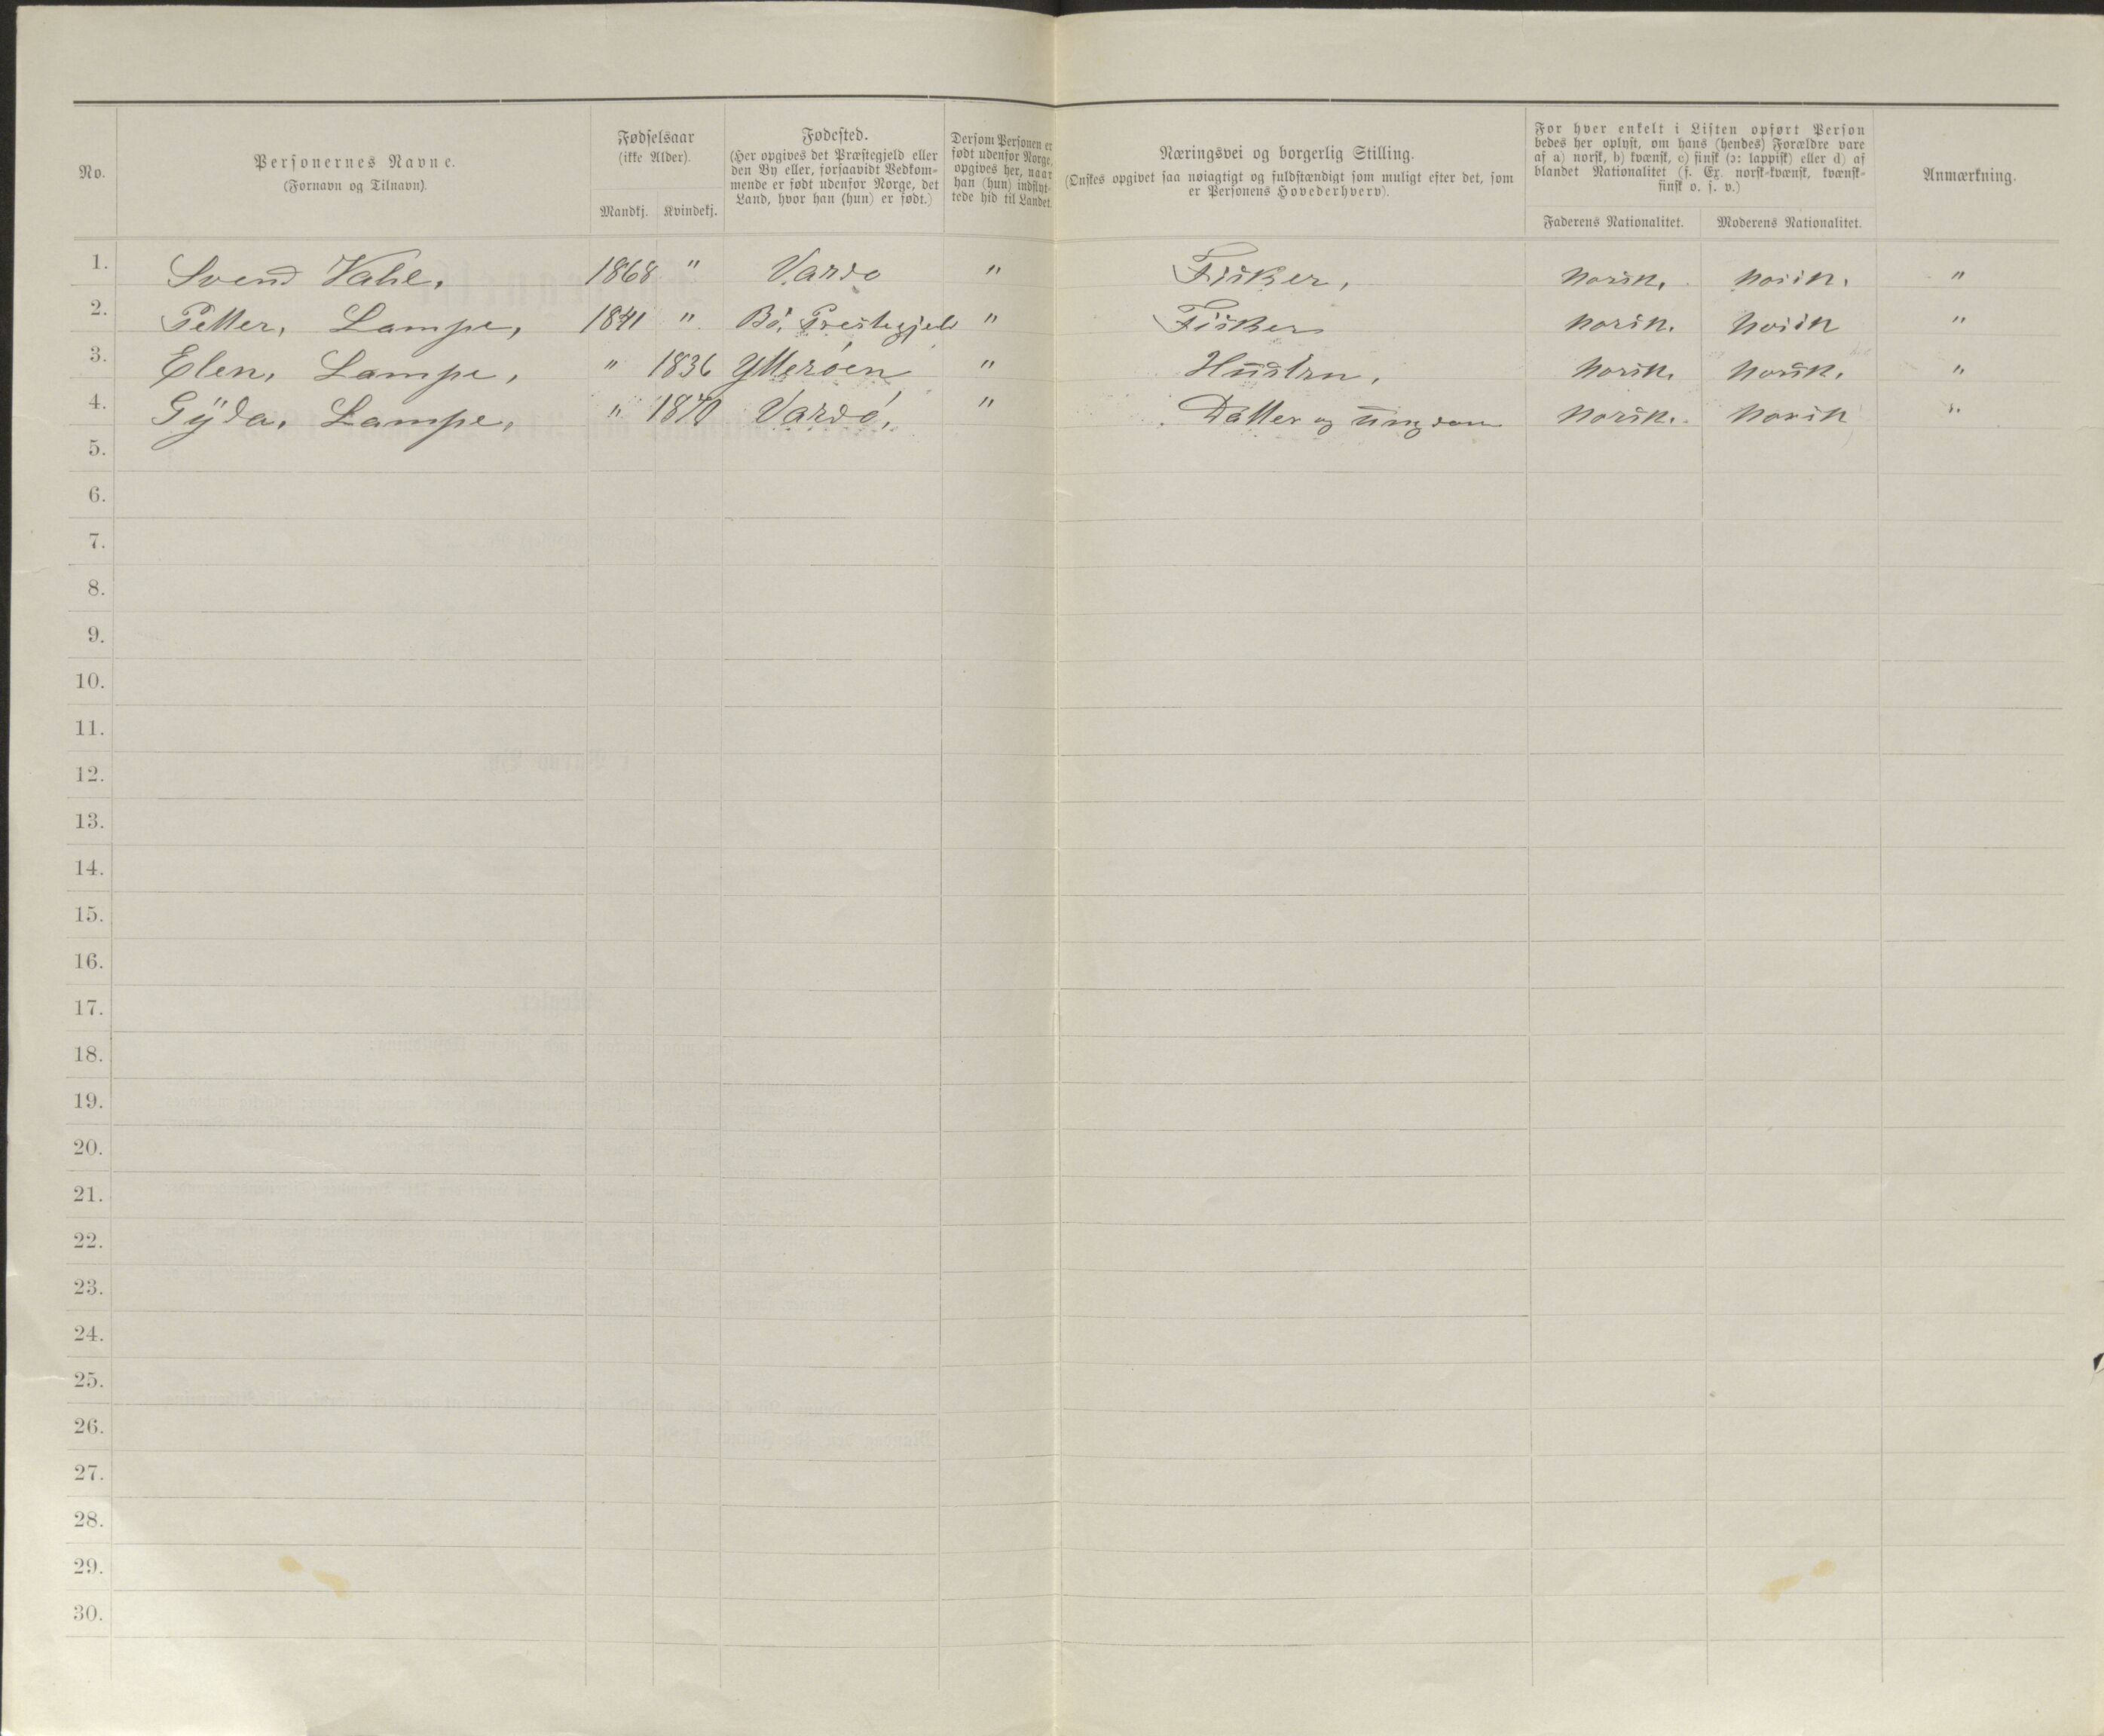 No.
Personernes Navne.
(Fornavn og Tilnavn).
Fødselsaar
(ikke Alder).
Mandkj. Kvindekj.
Fødested.
(Her opgives det Præstegjeld eller
den By eller, forsaavidt Vedkom-
mende er født udenfor Norge, det
Land, hvor han (hun) er født.)
Dersom Personen er
født udenfor Norge,
opgives her, naar
han (hun) indflyt-
tede hid til Landet.
Næringsvei og borgerlig Stilling.
(Ønskes opgivet saa nøiagtigt og fuldstændigt som muligt efter det, som
er Personens Hovederhverv).
For hver enkelt i Listen opført Person
bedes her oplyst, om hans (hendes) Forældre vare
af a) norsk, b) kvænsk, c) finsk (ɔ: lappisk) eller d) af
blandet Nationalitet (f. Ex. norsk-kvænsk, kvænsk-
finsk o. s. v.)
Faderens Nationalitet. Moderens Nationalitet.
Anmærkning.
1. Svend Vahl, 1868 " Vardo " Fisker, norsk. norsk. "
2. Petter, Lampe, 1841 " Bö, Prestegjeld " Fisker norsk. norsk "
3. Elen, Lampe, " 1836 Ytteröen " Hustru, norsk. norsk. "
4. Gÿda, Lampe, " 1870 Vardö, " Datter og ungdom norsk. norsk "
5.
6.
7.
8.
9.
10.
11.
12.
13.
14.
15.
16.
17.
18.
19.
20.
21.
22.
23.
24.
25.
26.
27.
28.
29.
30.